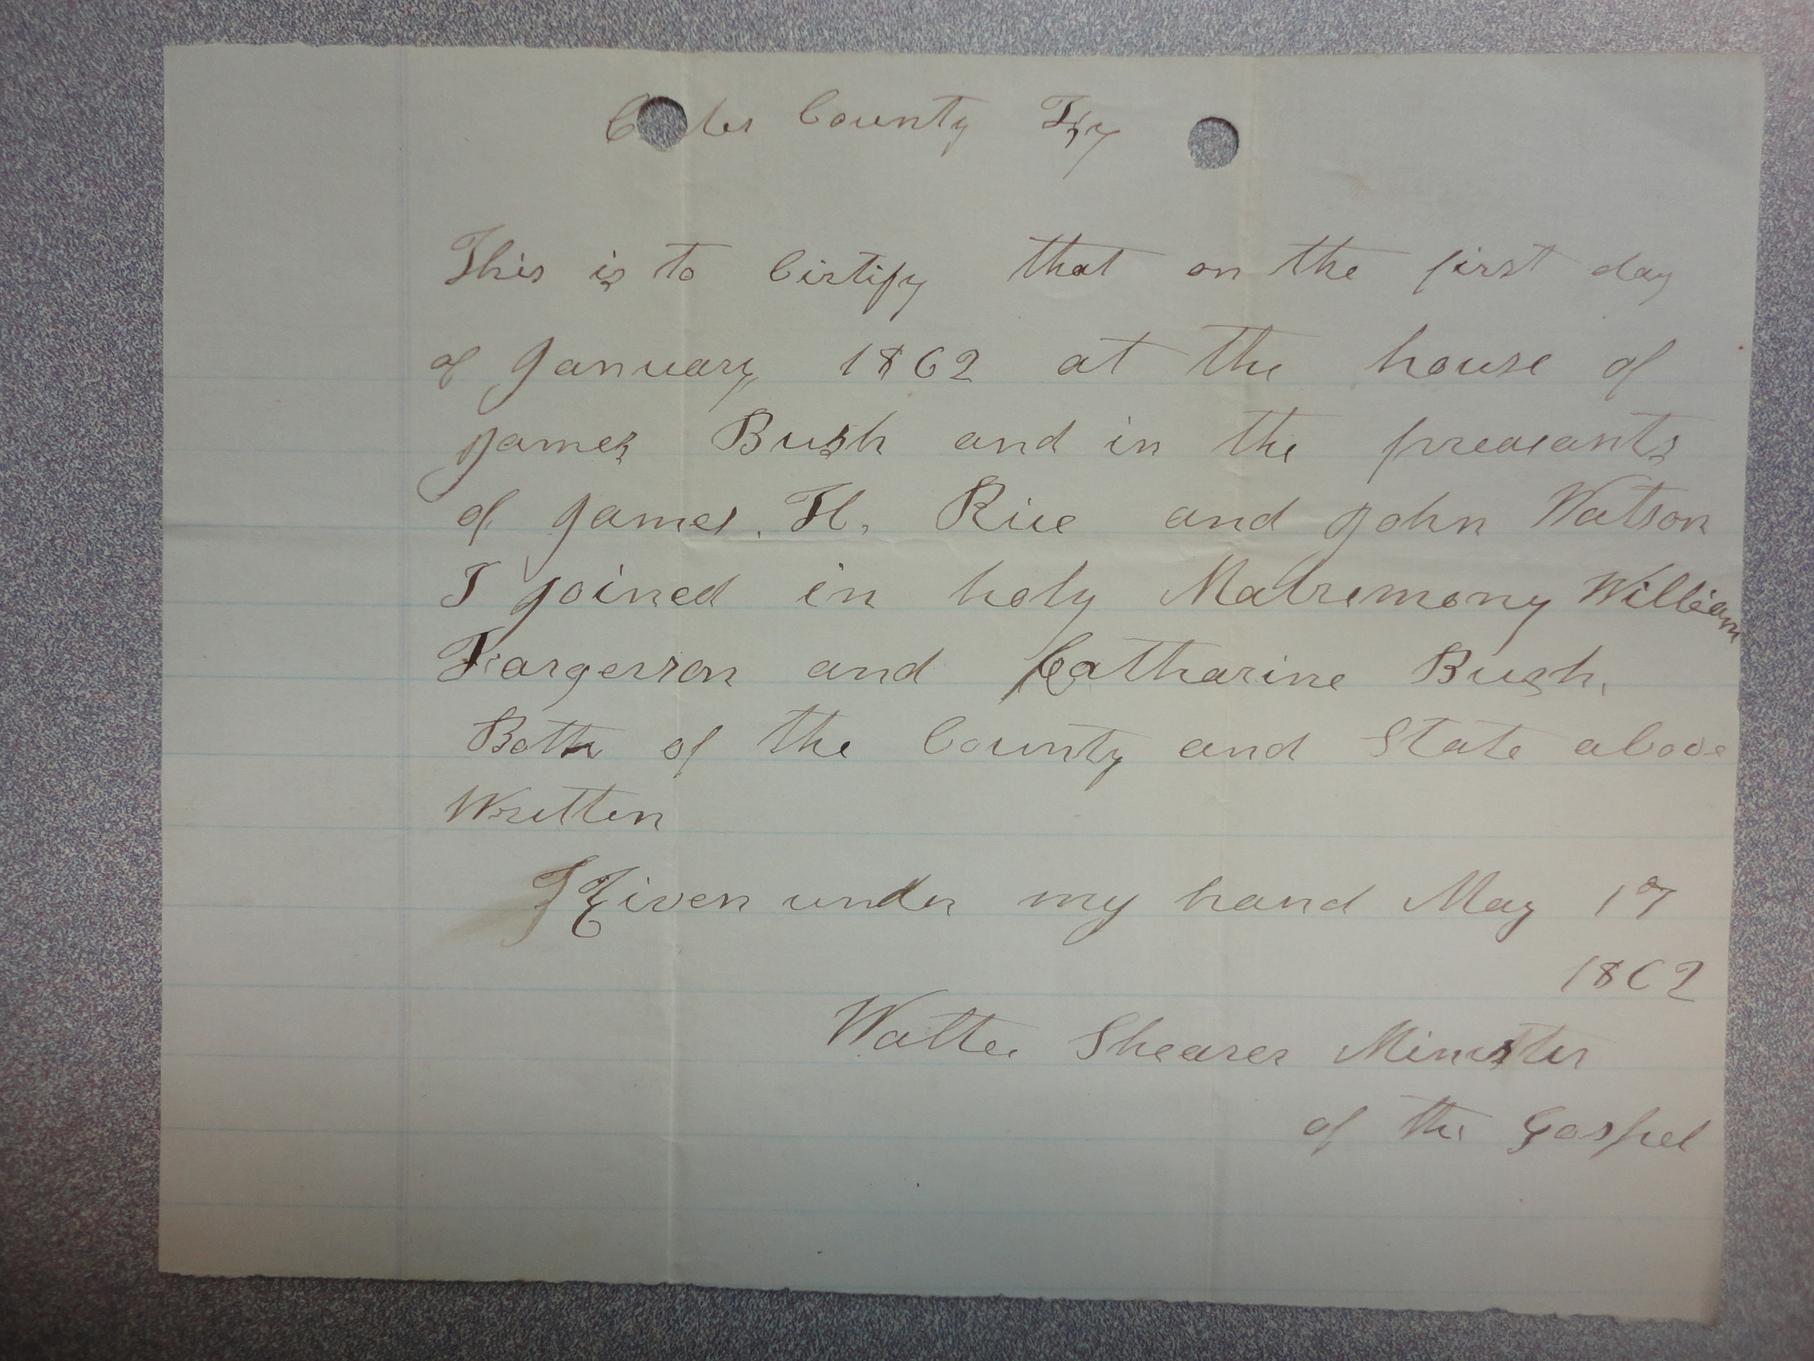 County Ky
This is to Cirtify that on the first day
of January 1862 at the house of
James Bush and in the preasants
of James. H. Rice and John Watson
I joined in holy Matremony William
Fargerson and Catharine Bush.
Both of the County and State above
Written
Given under my hand May 17
1862
Walter Shearer Minister
of the Gospel